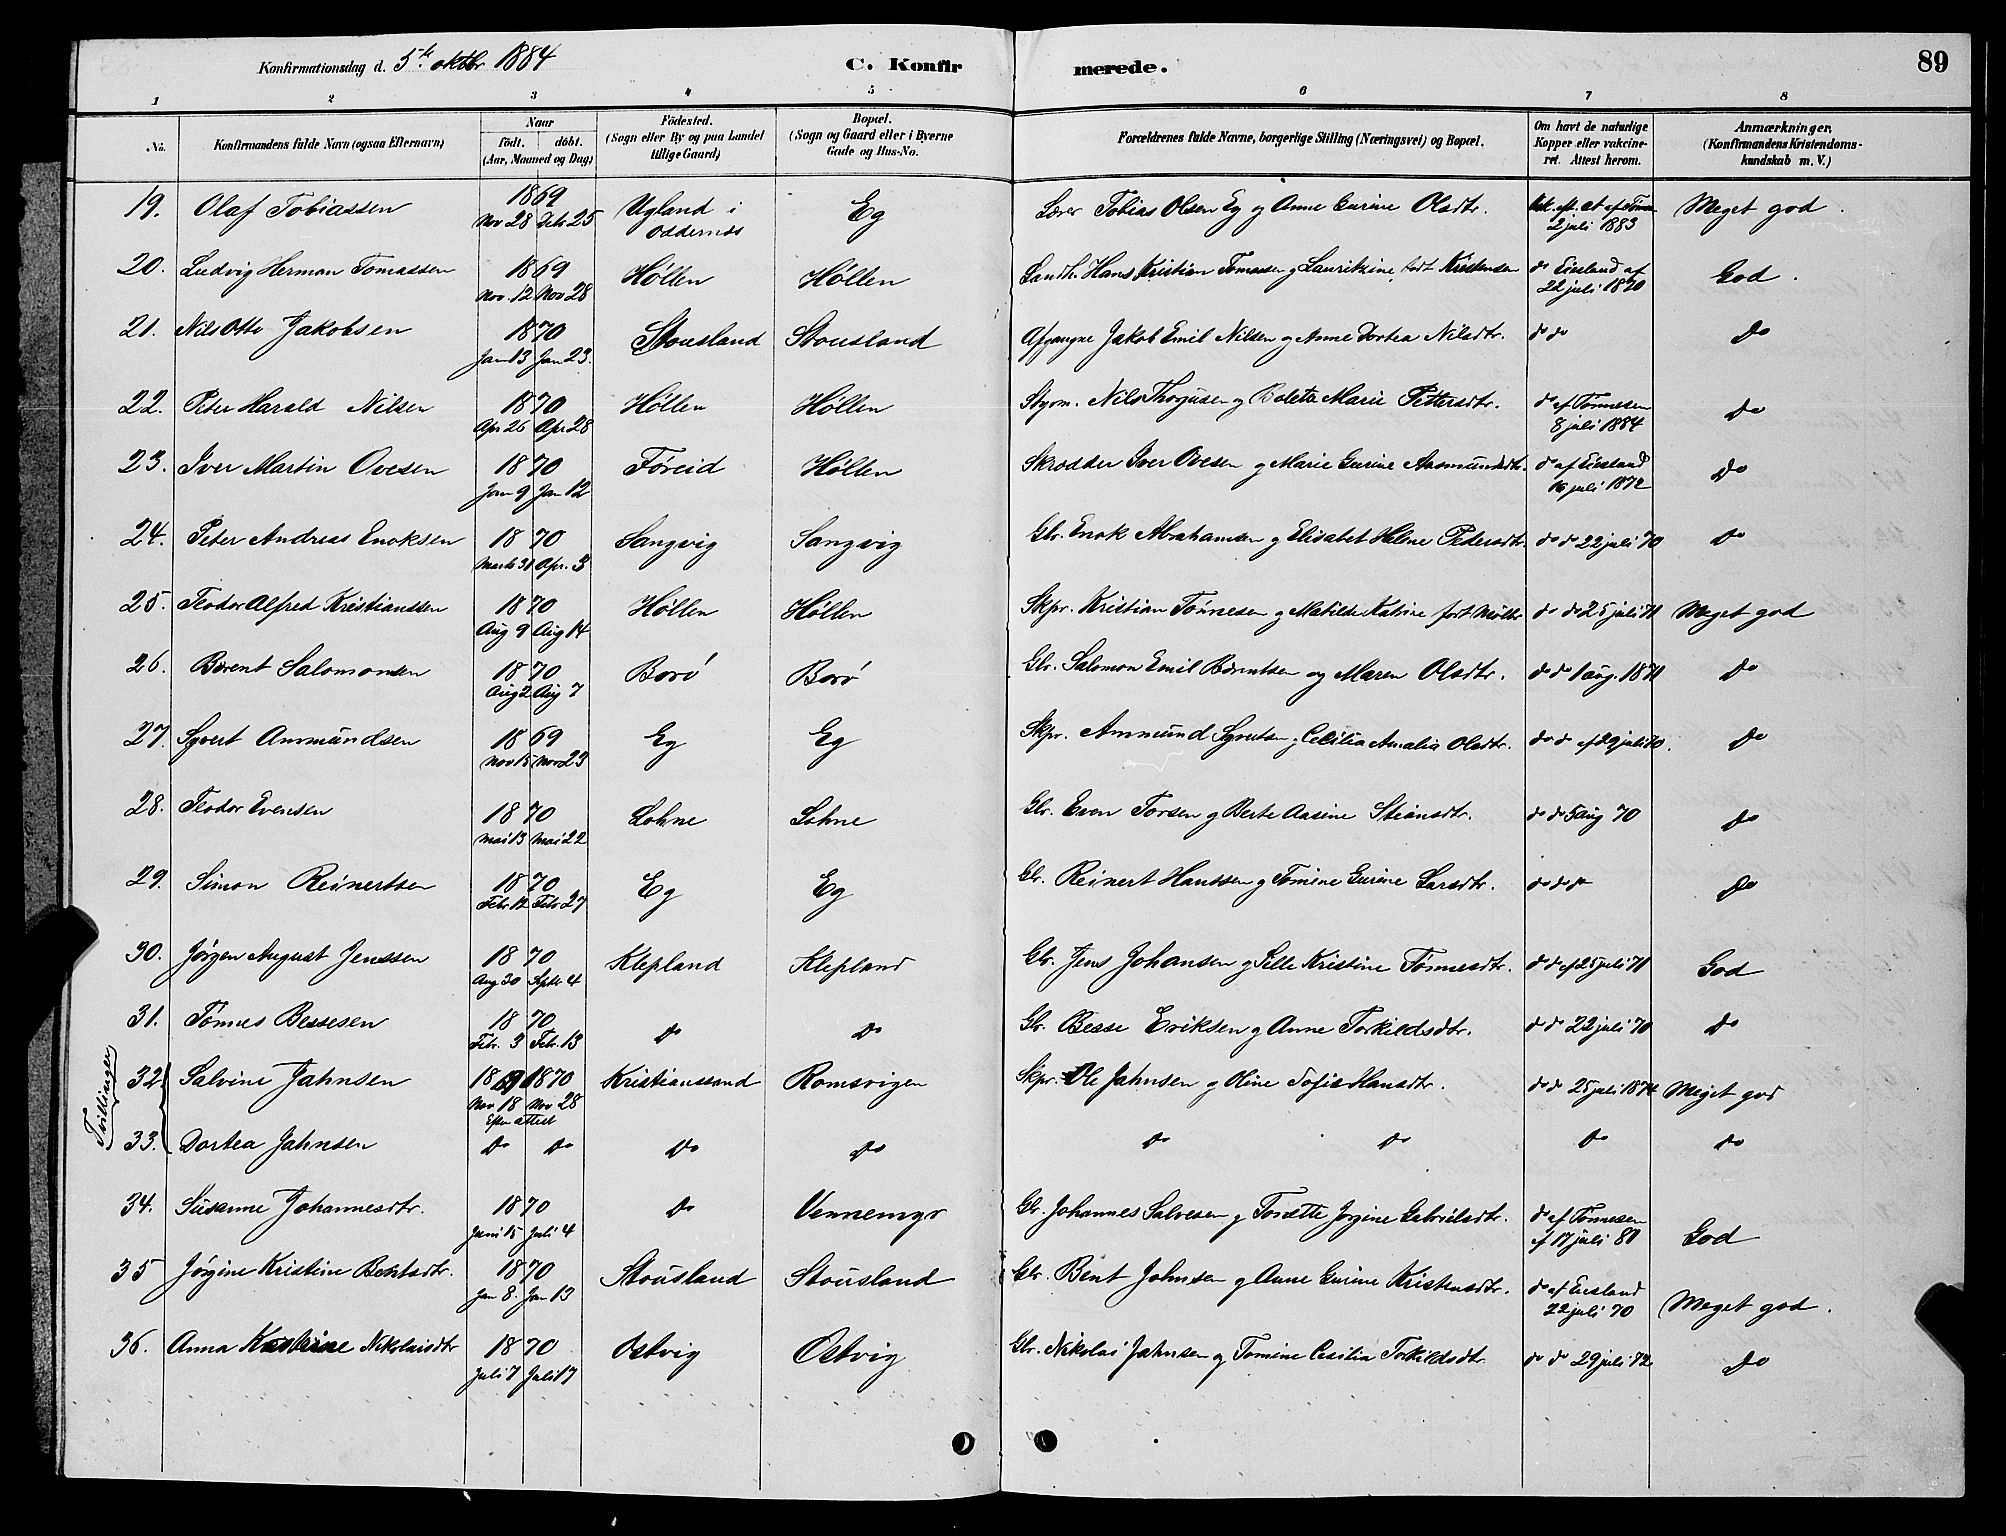 Konfirmationsdag d. 5te oktbr 1884 C. Konfirmerede. 89
1 2 3 4 5 6 7 8
No. Konfirmandens fulde Navn (ogsaa Efternavn) Naar födt. döbt. (Aar, Maaned og Dag) Födested. (Sogn eller By og paa Landet tillige Gaard) Bopæl. (Sogn og Gaard eller i Byerne Gade og Hus-No. Forældrenes fulde Navne, borgerlige Stilling (Næringsvei) og Bopæl. Om havt de naturlige Kopper eller vakcineret. Attest herom. Anmærkninger. (Konfirmandens Kristendomskundskab m. V.)
19. Olaf Tobiassen 1869 Nov 28 Decbr 25 Ugland i Oddernæs Eg Lærer Tobias Olsen Eg og Anne Gurine Olsdtr. 2 juli 1883 Meget god.
20. Ludvig Herman Tomassen 1869 Nov. 12 Nov 28 Höllen Höllen Landh. Hans Kristian Tomassen og Lauritzine født Kristensen do Eiesland af 22 juli 1870 God.
21. Nils Otto Jakobsen 1870 Jan 13 Jan 23. Stousland Stousland Afgangne Jakob Emil Nilsen og Anne Dortea Nilsdtr. do do Do
22. Peter Harald Nilsen 1870 Apr 26 Apr 28 Höllen Höllen Styrm. Nils Thorgusen og Bolette Marie Pettersdtr. do af Tönnesen 8 juli 1884 Do
23. Iver Martin Ovesen 1870 Jan 9 Jan 12 Föreid Höllen Skrædder Iver Ovesen og Marie Gurine Aasmundsdtr. do af Eiesland 16 juli 1872 Do
24. Peter Andreas Enoksen 1870 Marts 31 Apr. 3 Langvig Langvig Gbr. Enok Abrahamsen og Elisabet Helene Pedersdtr. do do 22 juli 70 Do
25. Teodor Alfred Kristianssen 1870 Aug 9 Aug 14 Höllen Höllen Skpr. Kristian Tönnesen og Matilde Katrine født Möller do do 25 juli 71 Meget god
26. Bærent Salomonsen 1870 Aug 2 Aug 7 Borö Borö Gbr. Salomon Emil Bærntsen og Maren Olsdtr. do do 1 aug. 1871 Do
27. Syvert Anmundsen 1869 Nov 15 Nov 23 Eg Eg Skpr. Anmund Syvertsen og Cecilia Amalia Olsdtr. do do af 29 juli 70. Do
28. Teodor Evensen 1870 Mai 13 Mai 22 Lohne Lohne Gbr. Even Torsen og Berte Aasine Stiansdtr. do do 5 aug 70 Do
29. Simon Reinertsen 1870 Febr 12 Febr 27 Eg Eg Gbr. Reinert Hanssen og Tomine Gurine Larsdtr. do do do Do
30. Jörgen August Jenssen 1870 Aug 30 Septbr 4 Klepland Klepland Gbr. Jens Johansen og Sille Kristine Tönnesdtr. do do af 25 juli 71 God
31. Tönnes Bessesen 1870 Febr. 3 Febr. 13 Do Do Gbr. Besse Eriksen og Anne Torkildsdtr. do do 22 juli 70 Do
Tvillinger
32 Salvine Jahnsen 1869 1870 Nov 18 Nov 28 Efter attest Kristianssand Romsvigen Skpr. Ole Jahnsen og Oline Sofie Hansdtr. do do 25 juli 1874 Meget god
33. Dortea Jahnsen Do Do Do Do Do Do Do Do
34. Susanne Johannesdtr. 1870 Juni 15 Juli 4 Do Vennemyr Gbr. Johannes Salvesen og Tonette Jörgine Gabrielsdtr. do af Tönnesen af 17 juli 80 God
35 Jörgine Kristine Bentsdtr. 1870 Jan 8. Jan 13 Stousland Stousland Gbr. Bent Johnsen og Anne Gurine Kristensdtr. do af Eiesland 22 juli 70 Meget god.
36. Anna Katrine Nikolaisdtr 1870 Juli 7 Juli 17 Ostvig Ostvig Gbr. Nikolai Jahnsen og Tomine Cesilia Torkildsdtr do do 29 juli 72 Do